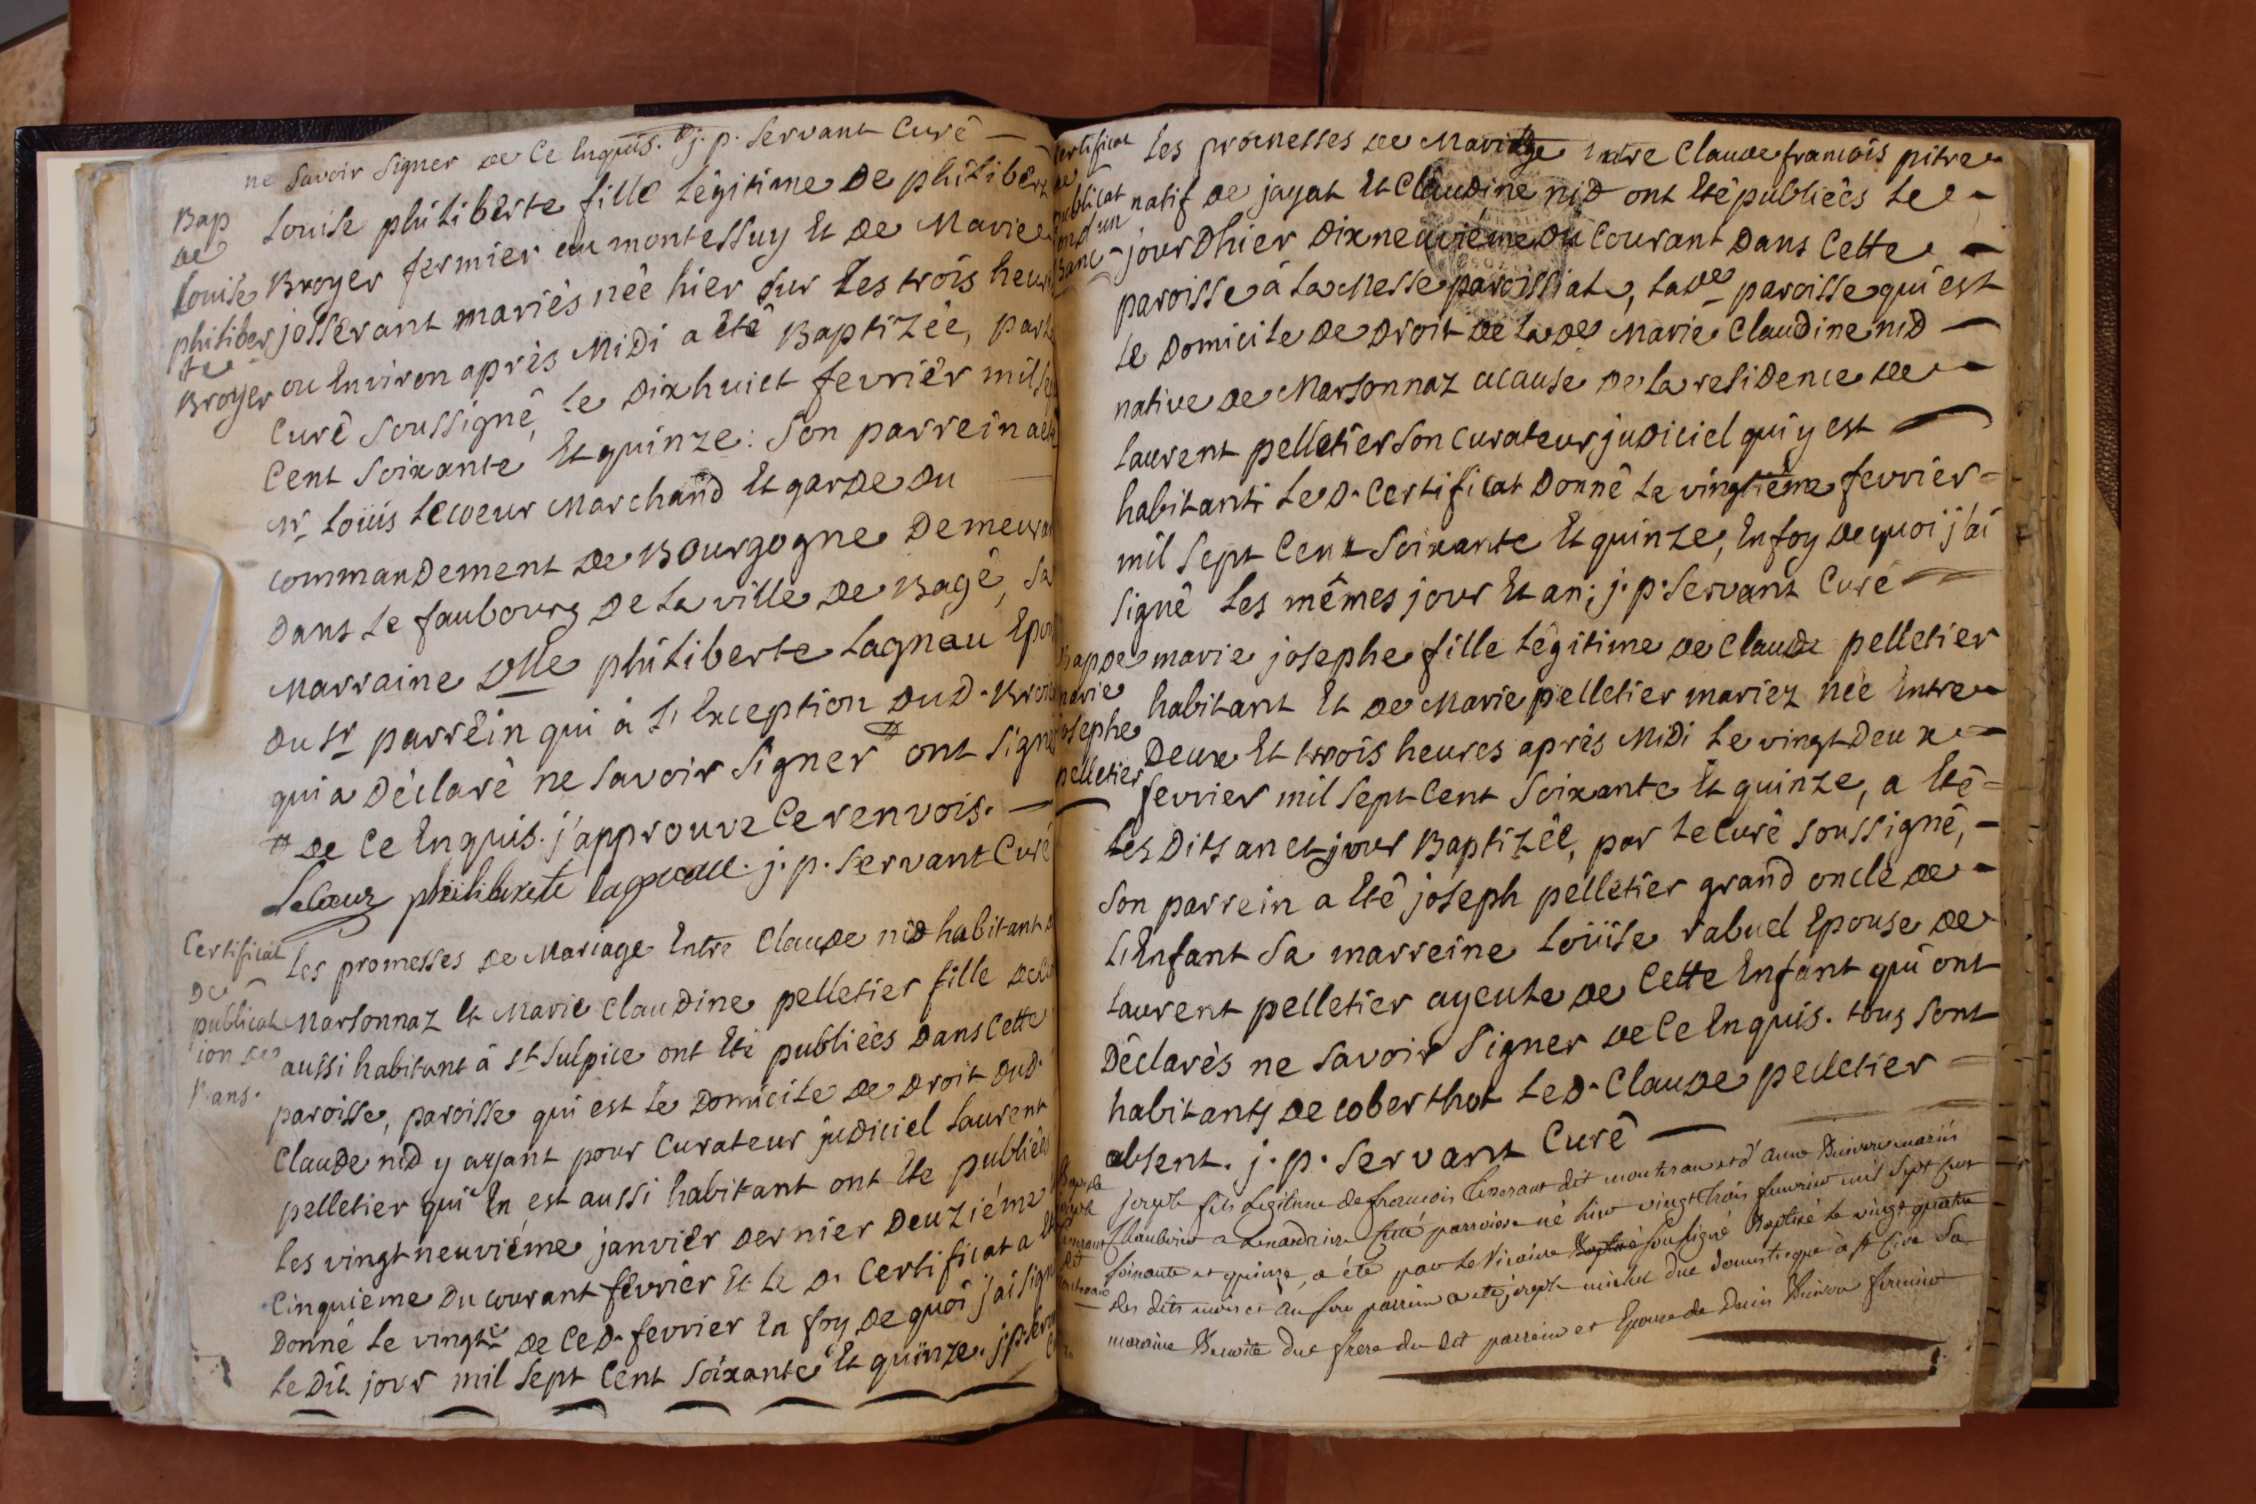 ne savoir signer de ce enquis. j. p. servant Curé
Bap
de
Louise
philiber
te
Broyer
Louise philiberte fille légitime de philibert
Broyer fermier au montessuy et de Marie
josserant mariés née hier sur les trois heur
ou environ après midi a été Baptizée, par le
Curé soussigné, le dixhuict fevrier mil se
Cent soixante et quinze: son parrein a ét
Mr Loüis Lecoeur Marchand et garde du
commandement de Bourgogne demeura
dans le faubourg de la ville de Bagé, sa
Marraine Dlle philiberte Lagneau Epou
du sr parrein qui à l'exception dud. Bro
qui a déclaré ne savoir signer # ont signé
# de ce enquis. j'approuve ce renvois.
Lecoeur philiberte lagneau. j. p. servant Curé
Certificat
de
publicat
ion de
Bans.
Les promesses de Mariage entre Claude nid habitant
Marsonnaz et Marie Claudine pelletier fille de
aussi habitant à st Sulpice ont été publiées dans cette
paroisse, paroisse qui est le domicile de droit dud.
Claude nid y ayant pour curateur judiciel laurent
pelletier qui en est aussi habitant ont été publiées
les vingt neuviéme janvier dernier deuziéme
cinquiéme du courant fevrier et le d. Certificat a
Donné le vingte de ce d. fevrier en foy de quoi j'ai sign
le dit jour mil sept cent soixante et quinze. j. p. serv
Certificat
de
publicat
ion d'un
Banc
Les promesses de Mariage entre Claude francois pitre
natif de jayat et Claudine nid ont été publiées le
jour dhier dixneuviéme du courant dans cette
paroisse à la Messe paroissiale, lade paroisse qui est
le domicile de droit de la de Marie Claudine nid
native de Marsonnaz acause de la residence de
laurent pelletier son curateur judiciel qui y est
habitant. le d. Certificat donné le vingtiéme fevrier
mil sept cent soixante et quinze, en foy de quoi j'ai
signé les mêmes jour et an; j. p. servant Curé
Bap de
marie
josephe
pelletier
marie josephe fille légitime de Claude pelletier
habitant et de Marie pelletier mariez née entre
deux et trois heures après midi le vingt deux
fevrier mil sept cent soixante et quinze, a été
les dits an et jour Baptizée, par le curé soussigné,
son parrein a été joseph pelletier grand oncle de
l'enfant sa marreine Loüise rabuel Epouse de
laurent pelletier ayeule de cette enfant qui ont
déclarés ne savoir signer de ce enquis. tous sont
habitants de coberthot le d. Claude pelletier
absent. j. p. servant Curé
joseph fils légitime de francois dit et d'anne mariés
a cette parroisse né hier vingt trois fevrier mil sept cent
soixante et quinze, a été par le vicaire soussigné Baptisé le vingt quatre
des dits mois et an son parrein a été joseph michel duc domestique à st Cire sa
maraine Benoite duc frere du dit parrein et Epouse de fermier